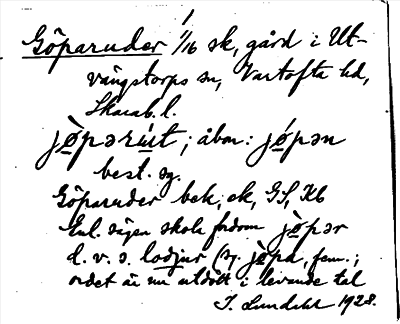 Göparuder 1/16 sk, gård i Ut-
vängstorps sn, Vartofta hd,
Skarab. l.
jòpərút; åbor: jópən
best. sg.
Göparuder bek, ek, GS, Kb
Enl. sägen skola fordom jòpər
d. v. s. lodjur (sg. jòpa, fem.;
ordet är nu utdött i levande tal
I. Lundahl 1928.